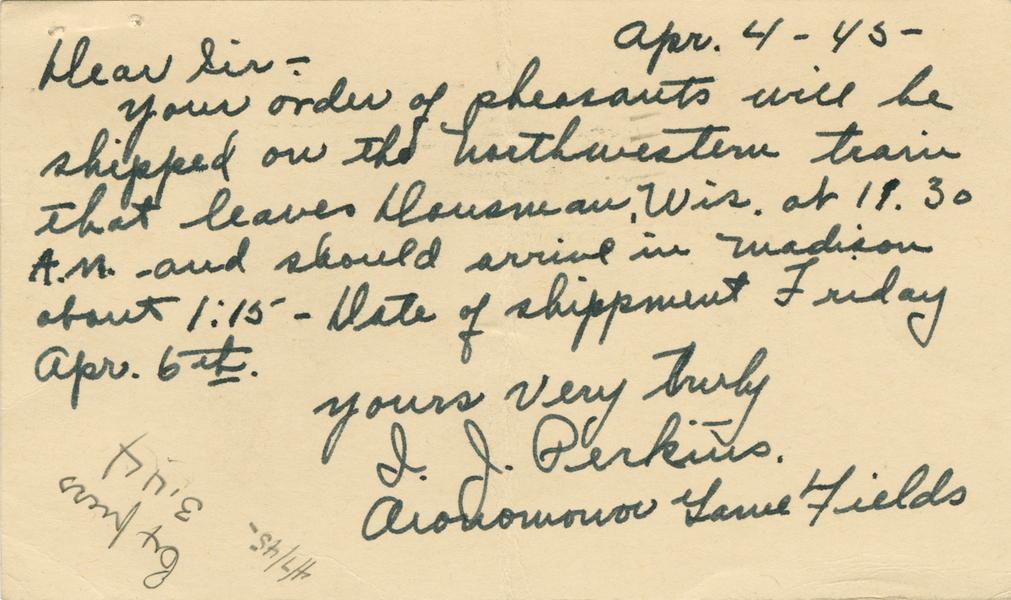 Apr. 4-45-
Dear Sir-
Your order of pheasants will be
shipped on the Northwestern train
that leaves Dousman, Wis. at 11.30
A.M. -and should arrive in Madison
about 1:15 - Date of shippment Friday
Apr. 6th.
Yours Very Truly
I. J. Perkins.
Oconomowoc Game Fields
3.44
4/7/45-